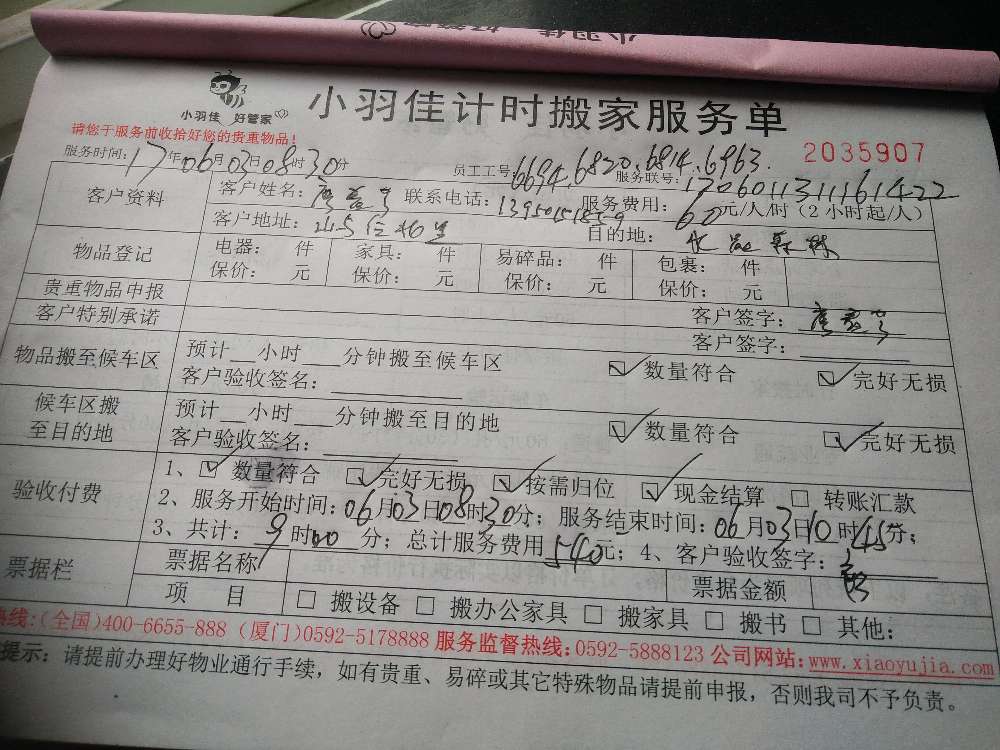 小羽佳 好管家
小羽佳计时搬家服务单
请您于服务前收拾好您的贵重物品!
2035907
服务时间: 17年06月03日08时30分
员工工号: 6694.6820.6814.6963.
服务联号: 1706011311161422
客户资料
客户姓名: 联系电话: 服务费用: 60元/人/时 (2小时起/人)
客户地址: 目的地:
物品登记
电器: 件 家具: 件 易碎品: 件 包裹: 件
保价: 元 保价: 元 保价: 元 保价: 元
贵重物品申报 客户签字:
客户特别承诺 客户签字:
物品搬至候车区
预计__小时___分钟搬至候车区 ☑数量符合 ☑完好无损
客户验收签名:
候车区搬至目的地
预计__小时___分钟搬至目的地 ☑数量符合 ☑完好无损
客户验收签名:
验收付费
1、☑数量符合 ☑完好无损 ☑按需归位 ☑现金结算 □转账汇款
2、服务开始时间: 06月03日08时30分; 服务结束时间: 06月03日10时45分;
3、共计: 9时00分; 总计服务费用540元; 4、客户验收签字:
票据栏
票据名称 票据金额
项目 □搬设备 □搬办公家具 □搬家具 □搬书 □其他:
热线:(全国)400-6655-888 (厦门)0592-5178888 服务监督热线:0592-5888123 公司网站:www.xiaoyujia.com
提示: 请提前办理好物业通行手续, 如有贵重、易碎或其它特殊物品请提前申报, 否则我司不予负责。